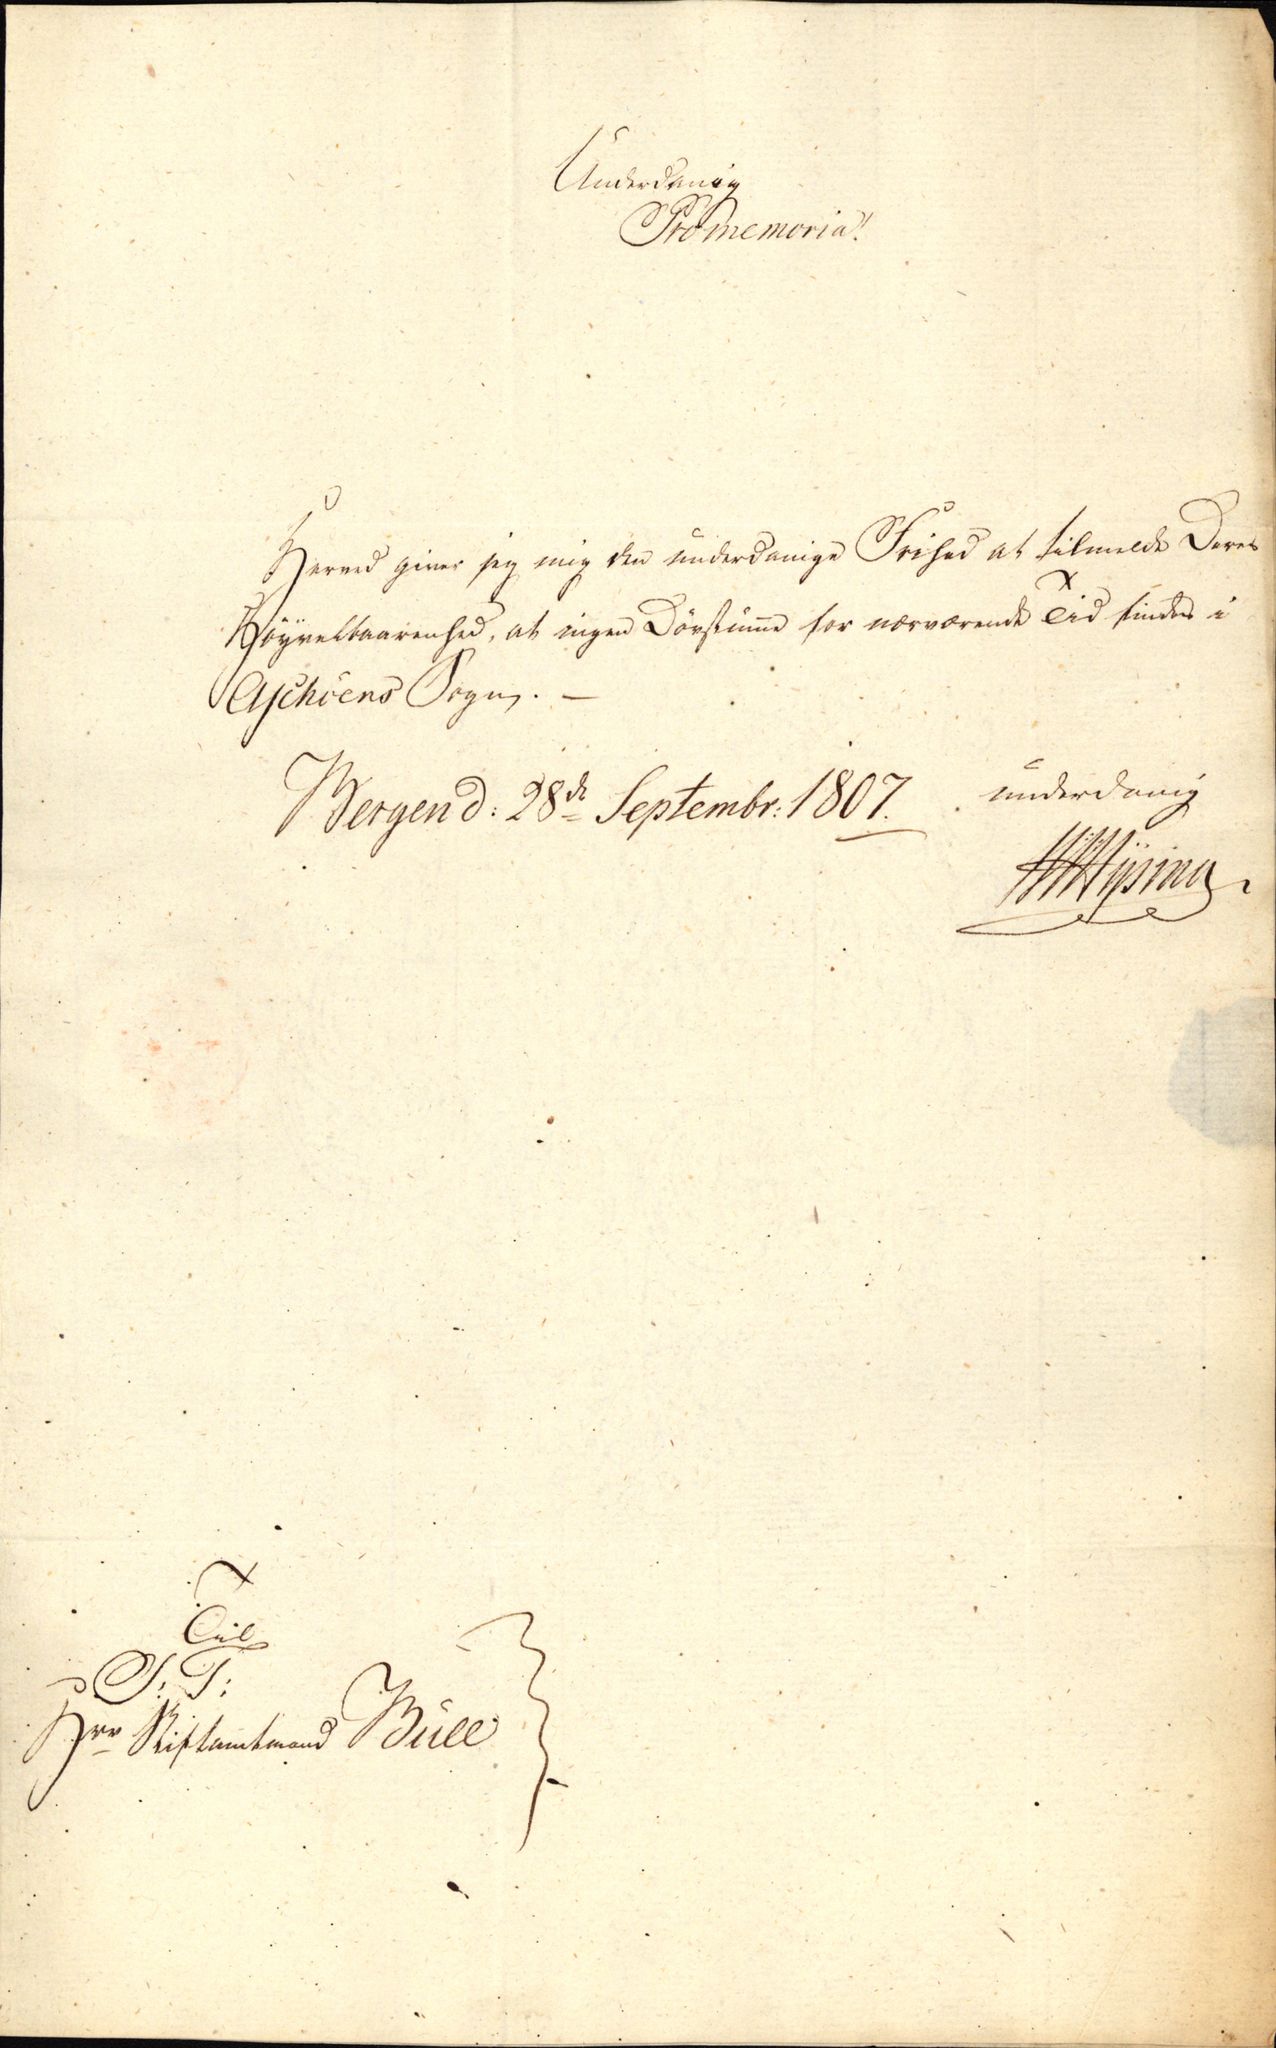 Underdanig
Promemoria!
Herved giver jeg mig den underdanige Frihed at tilmelde Deres
Höyvelbaarenhed, at ingen Dövstumme for nærværende Tid findes i
Aschöens Sogn. —
Bergen d: 28de Septembr: 1807.
underdanig
Hysing
Til
S: T:
Hrr Stiftamtmand Bull